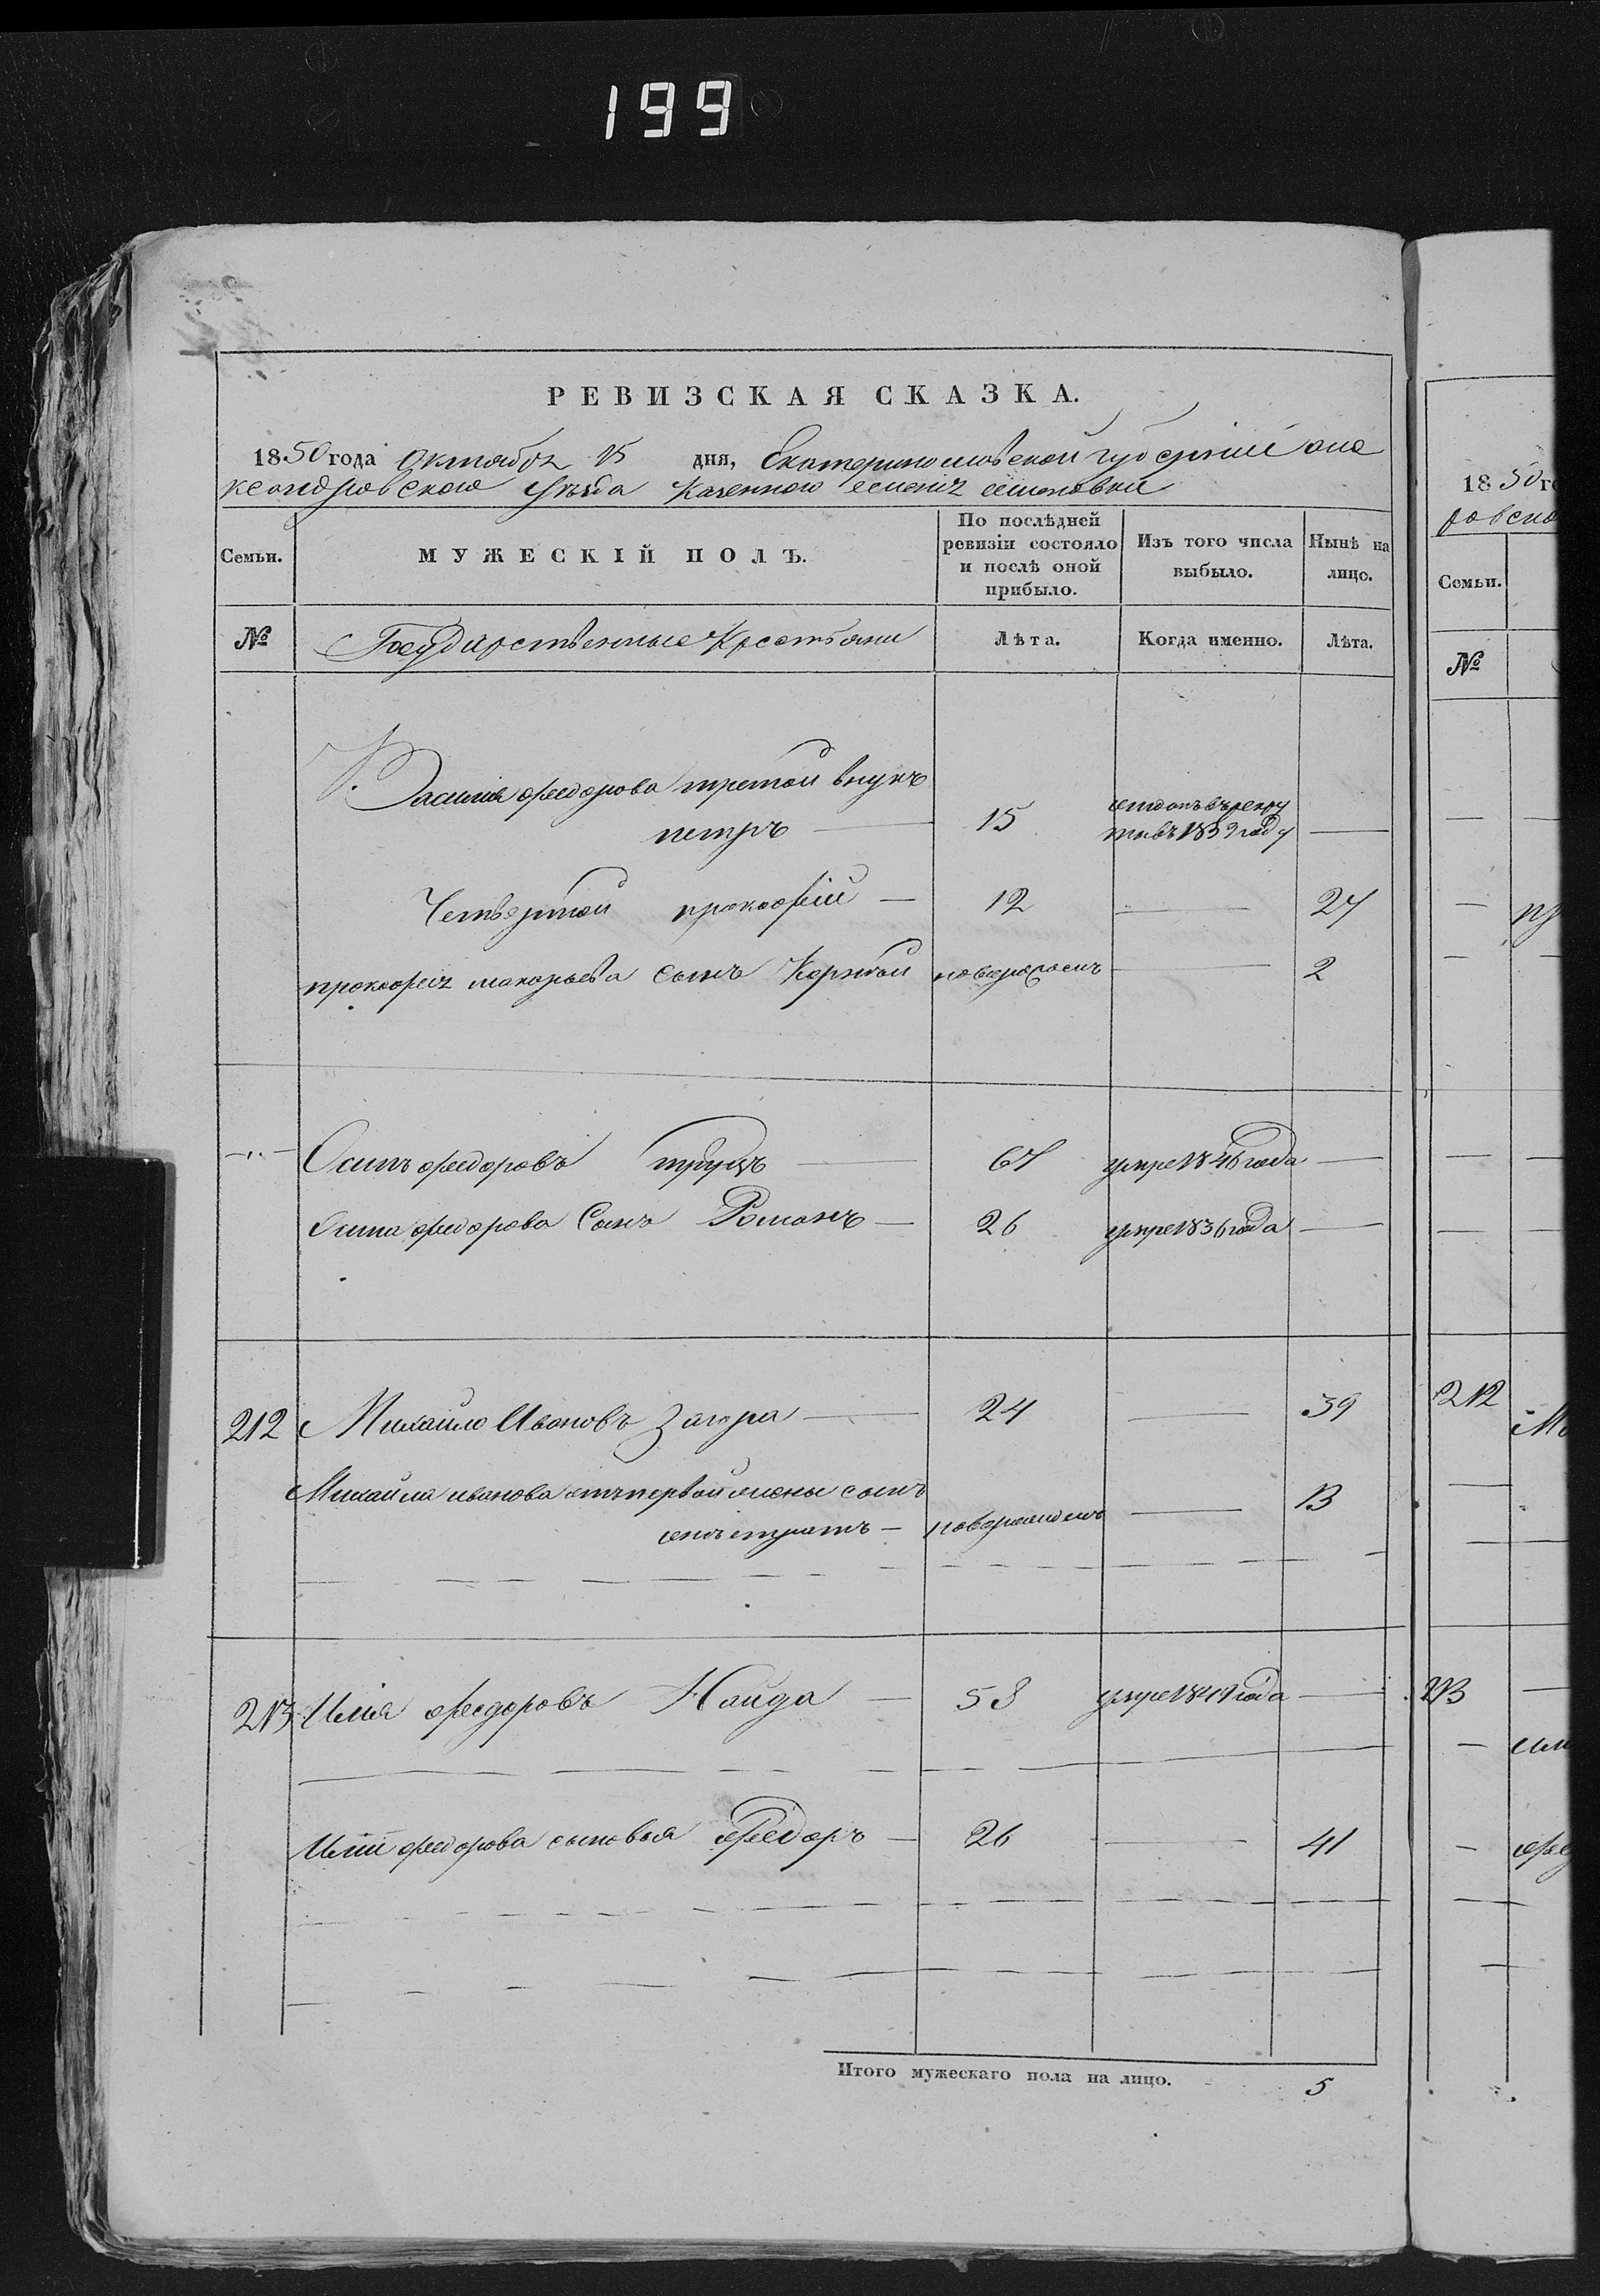 199
РЕВИЗСКАЯ СКАЗКА.
1850 года Октября 15 дня, Екатеринославской губерніи Але
ксандровского уѣзда казенного селенія
Семьи. МУЖЕСКІЙ ПОЛЪ. По послѣдней ревизіи состояло и послѣ оной прибыло. Изъ того числа выбыло. Нынѣ на лицо.
№ Государственные Крестьяни Лѣта. Когда именно. Лѣта.
Василія федорова третой внукъ
петръ — 15 отданъ въ рекру
ты въ 1839 году —
Четвертой прокофій — 12 — 27
прокофія макарьева сынъ Корнѣй новорожденъ — 2
Осипъ федоровъ — 67 умре 1846 года —
Осипа федорова Сынъ Романъ — 26 умре 1836 года —
212 Михайло Ивановъ Загира — 24 — 39
Михайла иванова отъ первой жены сынъ
— новорожденъ — 13
213 Илія федоровъ Найда — 53 умре 1849 года —
Иліи федорова сыновья Федоръ — 26 — 41
Итого мужескаго пола на лицо. 5
1850 го
ровско
Семьи.
№
212
Ми
213
фед